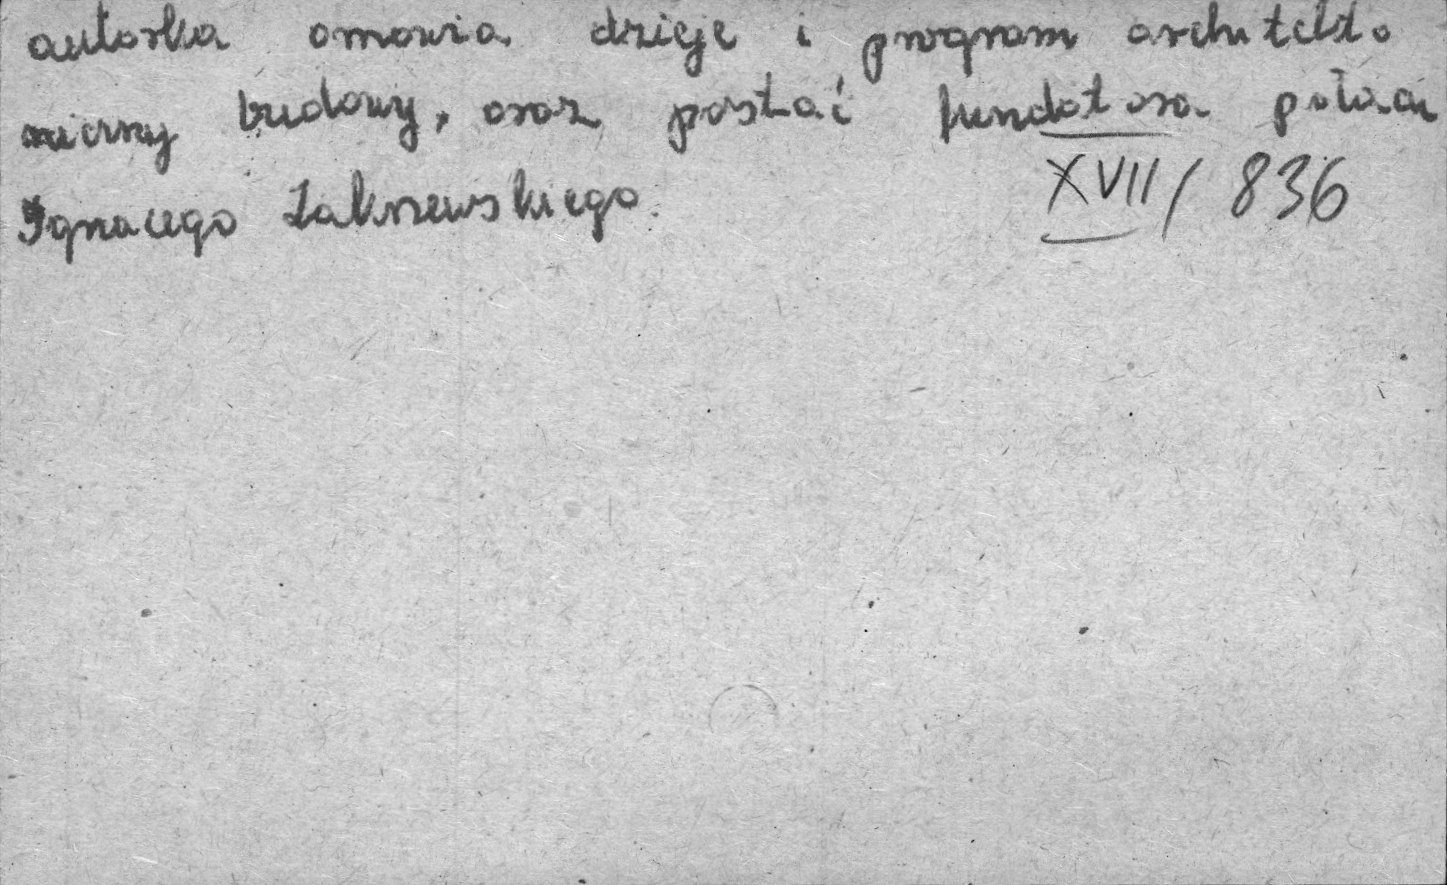 autorka omawia dzieje i program architekto
niczny budowy, oraz postać fundatora pałacu
Ignacego Zakrzewskiego.
XVII / 836